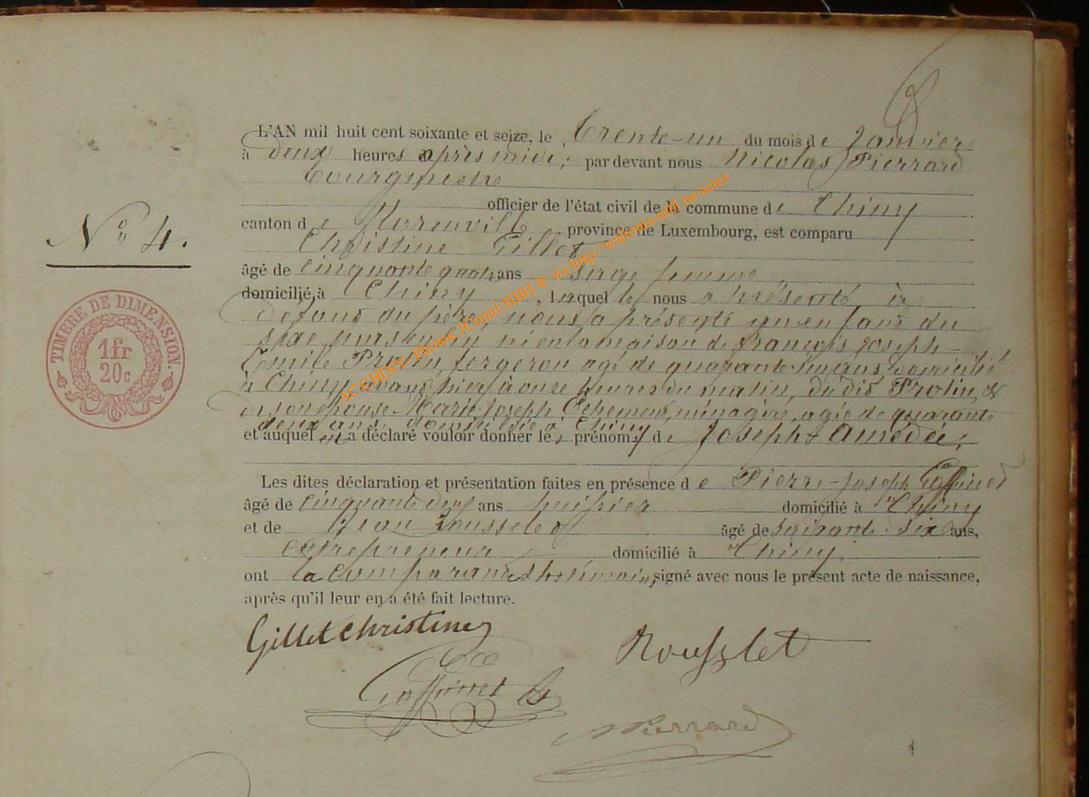 L'AN mil huit cent soixante et seize, le Trente-un du mois de Janvier
à deux heures après midi, par devant nous Nicolas Pierrard
Bourgmestre
officier de l'état civil de la commune de Chiny
canton de Florenville province de Luxembourg, est comparu
Christine Gillet
Nº 4.
âgé de cinquante quatre ans sage femme
domicilié à Chiny, laquelle nous a présenté, à
défaut du père, nous a présenté un enfant du
sexe masculin né en la maison de françois Joseph
Emile Protin, forgeron agé de quarante ans domicilié
à Chiny, avant hier à onze heures du matin, du dit Protin, &
de son épouse Marie Joseph ménagère, agée de quarante
deux ans, domiciliée à Chiny
et auquel il a déclaré vouloir donner les prénoms de Joseph Amédée,
Les dites déclaration et présentation faites en présence de Pierre-Joseph Goffinet
âgé de cinquante deux ans huissier domicilié à Chiny
et de Jean Rousselet âgé de soixante six ans,
entrepreneur domicilié à Chiny,
ont la comparante & les témoins, signé avec nous le présent acte de naissance,
après qu'il leur en a été fait lecture.
TIMBRE DE DIMENSION.
1fr
20c
Gillet Christine
Rousselet
Goffinet
NPierrard